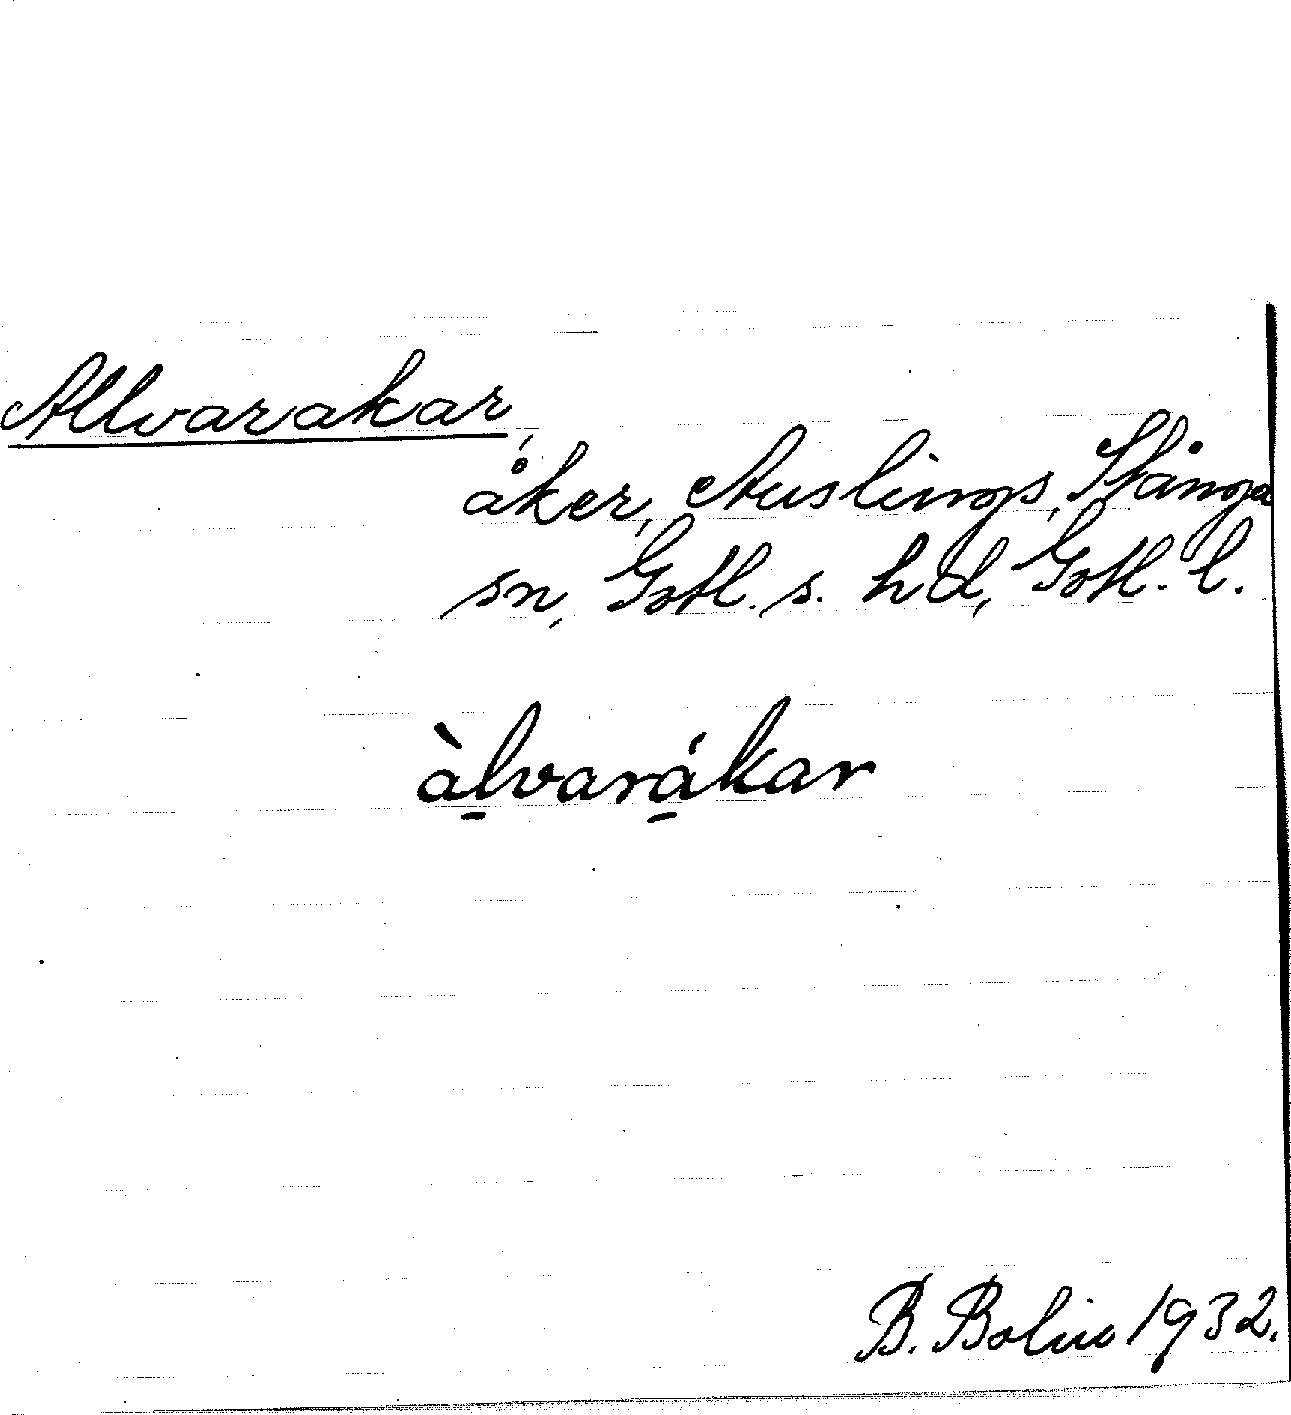 Allvarakar,
åker, Auslings, Stånga
sn, Gotl. s. hd, Gotl. l.
àl̠vará̠kar
B. Bolin 1932.